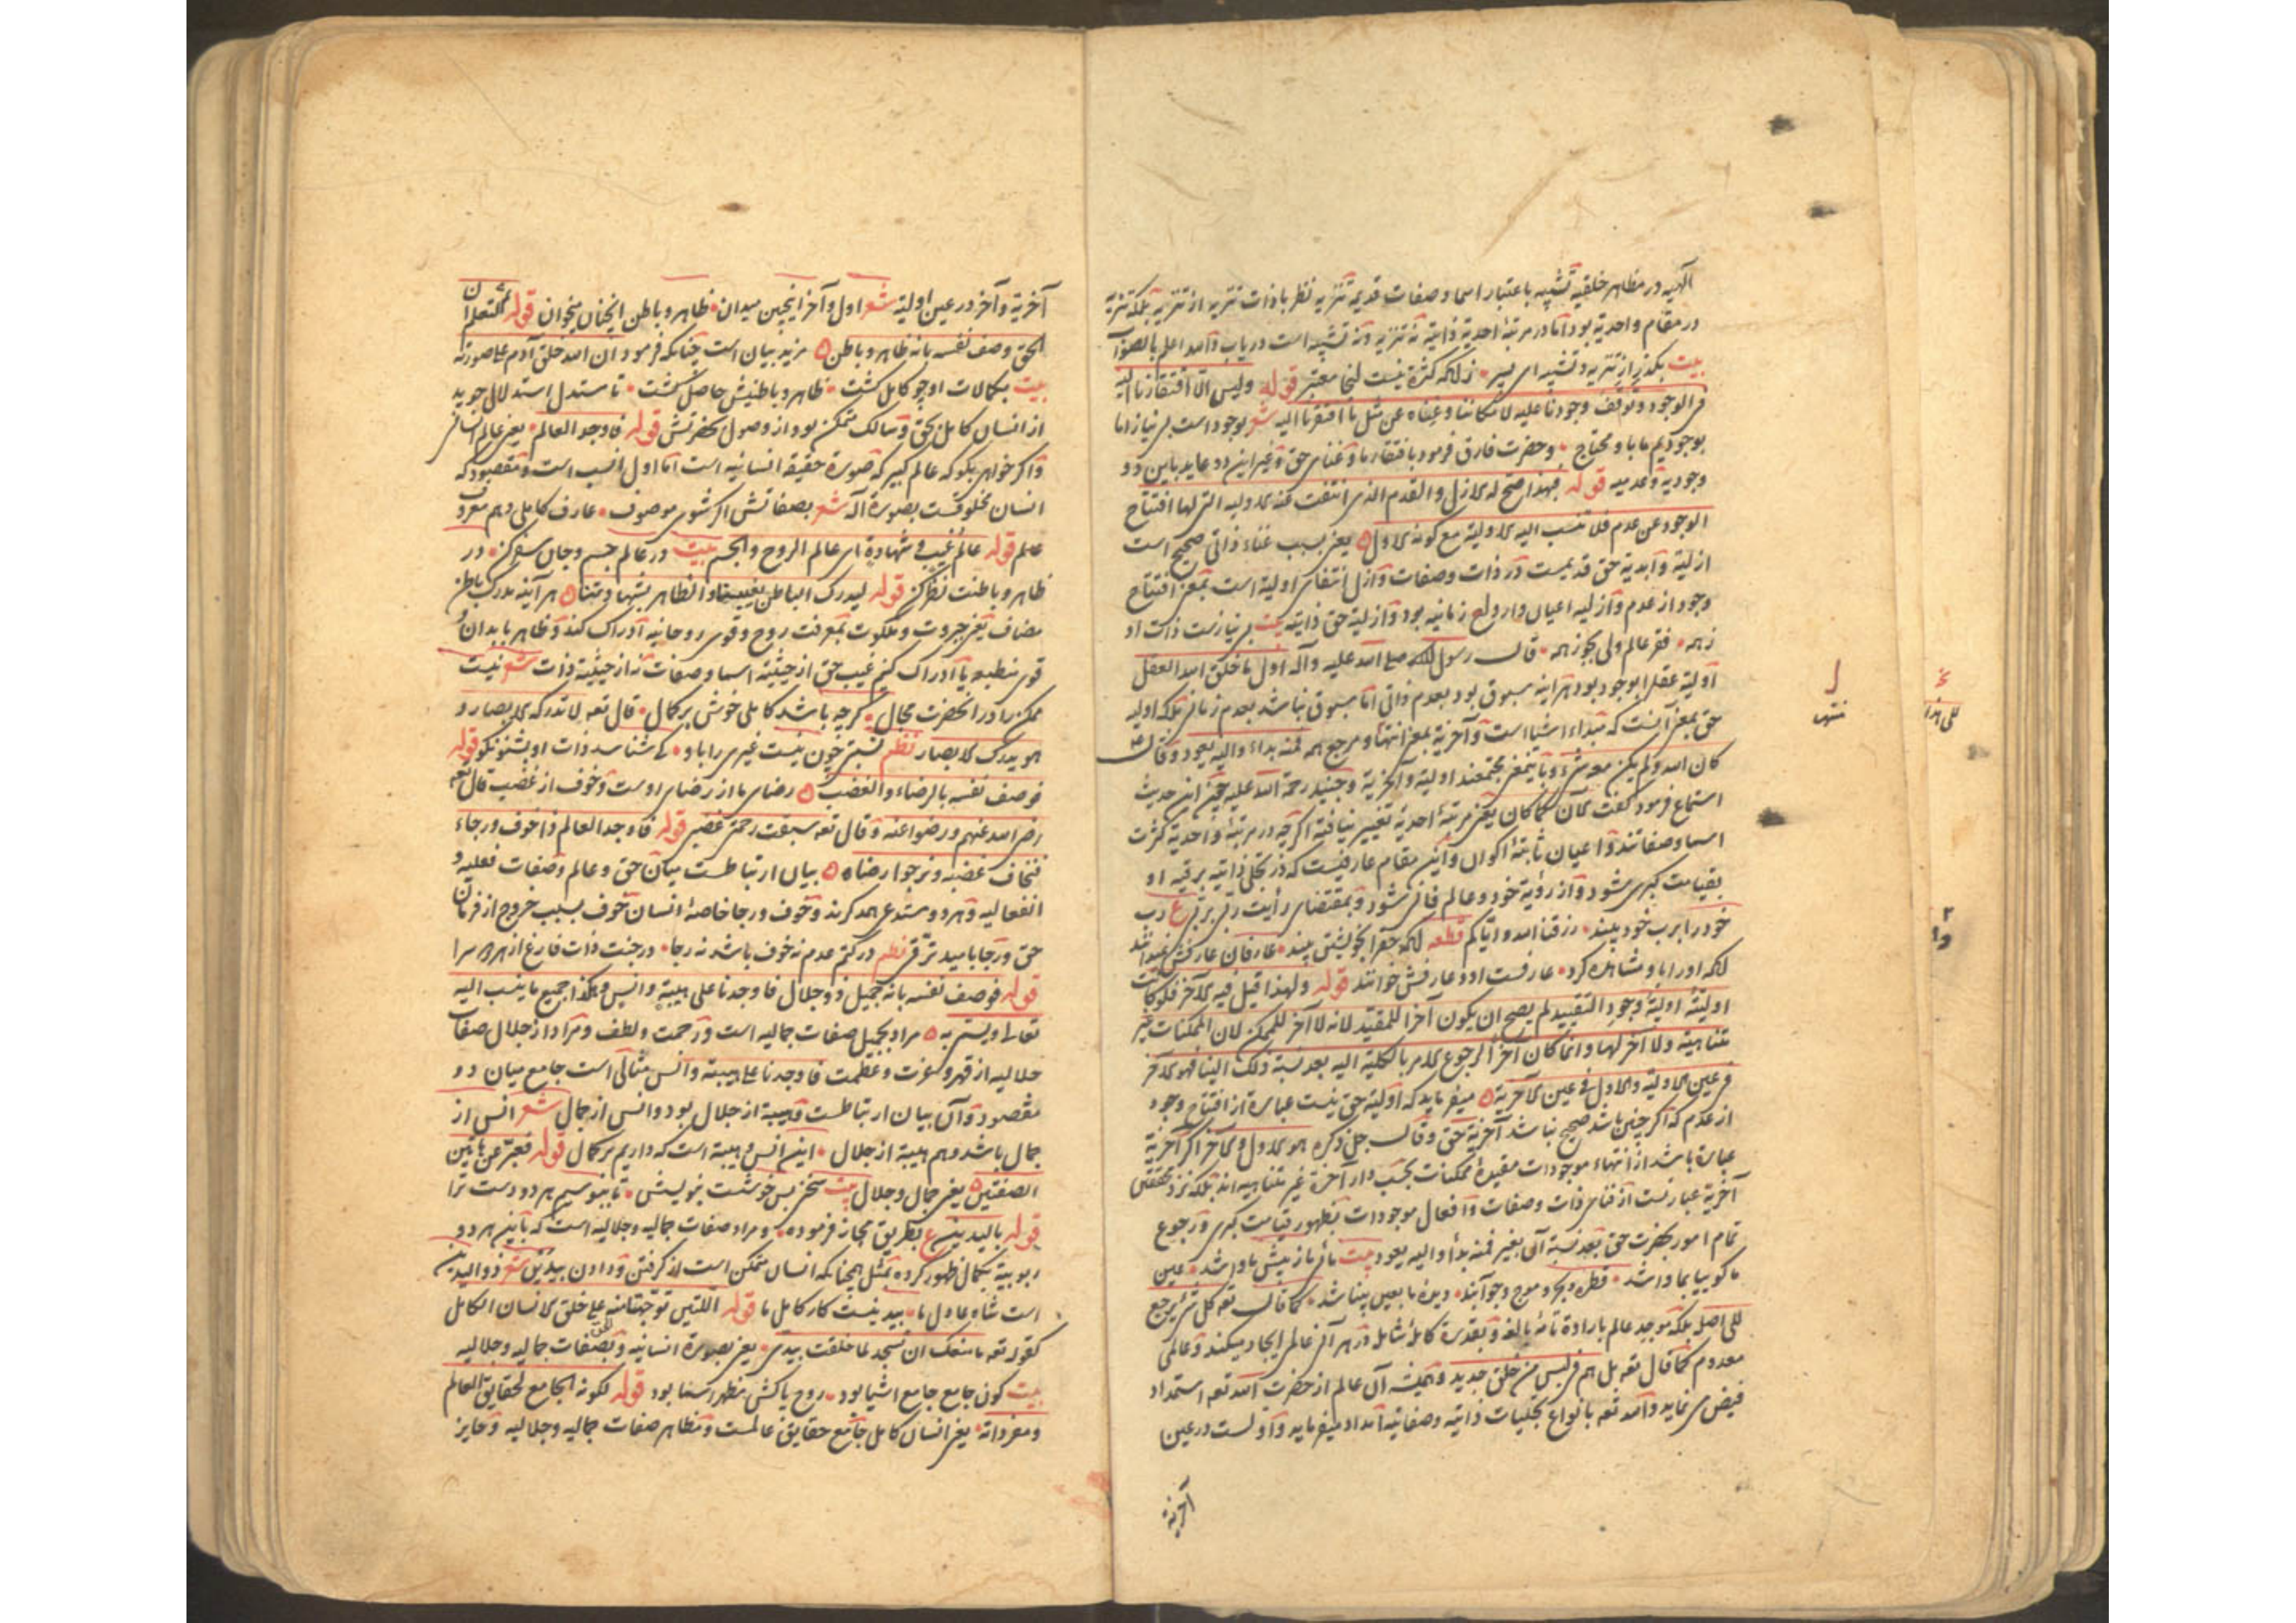 آلهیه در مظاهر خلقیه تشبیه باعتبار اسما و صفات قدیمه تنزیه نظر باذات تنزیه از تنزیه بلکه تنزیه
در مقام واحدیة بود اما در مرتبهٔ احدیة ذاتیة نه تنزیه و نه تشبیه است دریاب و الله اعلم بالصواب
بیت بگذر از تنزیه و تشبیه ای پسر زانکه کثرة نیست اینجا معتبر قوله ولیس الا افتقارنا الیه
فی الوجود و توقف وجودنا علیه لامکاننا و غناه عن مثل ما افتقرنا الیه شعر بوجود است بی نیاز از ما
بوجودیم ما باو محتاج و حضرت فارق فرمود بافتقار ما و غنای حق و غیر این دو عاید باین دو
وجودیة و عدمیه قوله فبهذا صح له الازل والقدم الذی انتفت عنه الاولیه التی لها افتتاح
الوجود عن عدم فلا تنسب الیه الاولیة مع کونه الاول یعنی بسبب غناء ذاتی صحیح است
ازلیة و ابدیة حق قدیمست در ذات و صفات و ازل انتفای اولیة است بمعنی افتتاح
وجود از عدم و ازلیه اعیان و ارواح زمانیه بود و ازلیة حق ذاتیة بیت بی نیازست ذات او
ز همه فقر عالم ولی بجو ز همه قال رسول الله صلی الله علیه وآله اول ما خلق الله العقل
اولیة عقل ابوجود بود هرآینه مسبوق بود بعدم ذاتی اما مسبوق نباشد بعدم زمانی بلکه اولیه
حق بمعنی آنست که مبداء اشیا است و آخریة بمعنی انتها و مرجع همه فمنه بداء والیه یعود وقال
کان الله ولم یکن معه شیء و باین معنی مجتمعند اولیة و آخریة و جنید رحمة الله علیه چون این حدیث
استماع فرمود گفت الآن کما کان یعنی مرتبهٔ احدیة تغییر نیافته اگرچه در مرتبهٔ واحدیة کثرت
اسما و صفاتند و اعیان ثابتهٔ اکوان و این مقام عارفیست که در تجلی ذاتیه برقیه او
بقیامت کبری شود و از رؤیة خود و عالم فانی شود و بمقتضای رأیت ربی بربی ع رب
خود را برب خود بیند رزقنا الله وایاکم قطعه آنکه حق را بخویشتن بیند عارفان عارفش نمیدانند
آنکه او را باو مشاهده کرد عارفست او و عارفش خوانند قوله ولهذا قیل فیه الآخر فلو کانت
اولیته اولیة وجود التقیید لم یصح ان یکون آخرا للمقید لانه لا آخر للممکن لان الممکنات غیر
متناهیة ولا آخر لها وانما کان آخرا لرجوع الامر بالکلیة الیه بعد نسبة ذلک الینا فهو الآخر
فی عین الاولیة والاول فی عین الآخریة میفرماید که اولیة حق نیست عبارة از افتتاح وجود
از عدم که اگر چنین باشد صحیح نباشد آخریة حق وقال جل ذکره هو الاول والآخر اگر آخریة
عبارة باشد از انتهاء موجودات مقیدهٔ ممکنات بحسب دار آخرة غیر متناهیه اند بلکه نزد محققان
آخریة عبارتست از فنای ذات و صفات و افعال موجودات بظهور قیامت کبری و رجوع
تمام امور بحضرت حق بعد نسبة آن بغیر فمنه بدأ والیه یعود بیت ما باز بیش ما واشد عین
ما کو بیا بما واشد قطره و بحر و موج و جو آبند دیدهٔ ما بعین بینا شد کما قال تعه کل شیء یرجع
الی اصله بلکه موجد عالم بارادة تامهٔ بالغه و بقدرة کاملهٔ شامل در هر آنی عالمی ایجاد میکند و عالمی
معدوم کما قال تعه بل هم فی لبس من خلق جدید و همیشه آن عالم از حضرت الله تعه استمداد
فیض می نماید و الله تعه بانواع تجلیات ذاتیه و صفاتیه امداد میفرماید و اولست در عین
آخریة
آخریة و آخر در عین اولیة شعر اول و آخر اینچنین میدان ظاهر و باطن اینچنان میخوان قوله لتعلم ان
الحق وصف نفسه بانه ظاهر وباطن مزید بیان است چنانکه فرمود ان الله خلق آدم علی صورته
بیت بکمالات او چو کامل گشت ظاهر و باطنش حاصل گشت تا مستدل استدلال جوید
از انسان کامل بحق و سالک متمکن بود از وصول بحضرتش قوله فاوجد العالم یعنی عالم انسانی
واگر خواهی بگو که عالم کبیر که صورة حقیقة انسانیه است اما اول انسب است و مقصود که
انسان مخلوقست بصورة آله شعر بصفاتش اگر شوی موصوف عارف کاملی و هم معروف
علم قوله عالم غیب وشهادة ای عالم الروح والجسم بیت در عالم جسم و جان سفر کن در
ظاهر و باطنت نظر کن قوله لیدرک الباطن بغیبنا والظاهر بشهادتنا هر آینه مدرک باطن
مضاف یعنی جبروت و ملکوت بمعرفت روح و قوی روحانیه ادراک کند و ظاهر بابدان و
قوی منطبعه یا ادراک کنیم غیب حق از حیثیة اسما و صفات نه از حیثیة ذات شعر نیست
ممکن را در آنحضرت مجال گرچه باشد کاملی خوش پر کمال قال تعه لا تدرکه الابصار و
هو یدرک الابصار نظم نسبتی چون نیست غیری را باو کی شناسد ذات او بشنو نکو قوله
فوصف نفسه بالرضاء والغضب رضای ما از رضای اوست و خوف از غضب قال تعه
رضی الله عنهم ورضوا عنه وقال تعه سبقت رحمتی غضبی قوله فاوجد العالم ذا خوف ورجاء
فنخاف غضبه ونرجو رضاه بیان ارتباطست میان حق و عالم و صفات فعلیه و
انفعالیه و هر دو مستدعی همدگرند و خوف و رجا خاصهٔ انسان خوف بسبب خروج از فرمان
حق و رجا بامید ترقی نظم در کتم عدم نه خوف باشد نه رجا در جنت ذات فارغ از هر دو سرا
قوله فوصف نفسه بانه جمیل وذو جلال فاوجدنا علی هیبة وانس وهکذا جمیع ما ینسب الیه
تعالی ویسمی به مراد بجمیل صفات جمالیه است و رحمت و لطف و مراد از جلال صفات
جلالیه از قهر و عزت و عظمت فاوجدنا علی هیبة وانس مثالی است جامع میان دو
مقصود و آن بیان ارتباطست و هیبة از جلال بود و انس از جمال شعر انس از
جمال باشد و هم هیبة از جلال این انس و هیبة است که داریم بر کمال قوله فعبر عن هاتین
الصفتین یعنی جمال و جلال بیت سخنی بس خوشست بنویشی تا ببوسیم هر دو دست ترا
قوله بالیدین ع بطریق مجاز فرموده و مراد صفات جمالیه و جلالیه است که باین هر دو
ربوبیة بکمال ظهور کرده بمثل همچنانکه انسان متمکن است از گرفتن و دادن بیدین شعر ذو الیدین
است شاه عادل ما بیدینست کار کامل ما قوله اللتین توجهتا منه علی خلق الانسان الکامل
کقوله تعه ما منعک ان تسجد لما خلقت بیدی یعنی بصورة انسانیه و بصفات جمالیه و جلالیه
بیت کون جامع جامع اشیا بود روح پاکش مظهر اسما بود قوله لکونه الجامع لحقایق العالم
ومفرداته یعنی انسان کامل جامع حقایق عالمست و مظاهر صفات جمالیه و جلالیه و حایز